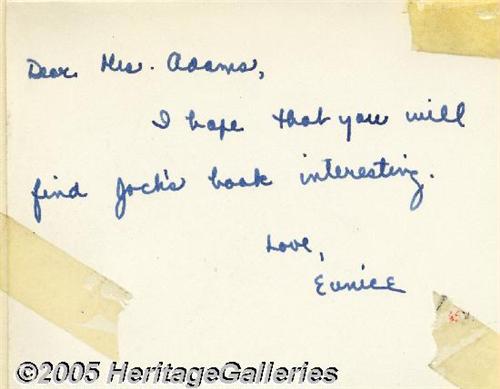 Dear Mrs. Adams,
I hope that you will
find Jack's book interesting.
Love,
Eunice
©2005 HeritageGalleries